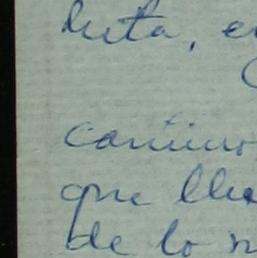 luta, e
camino
que lle
de lo n